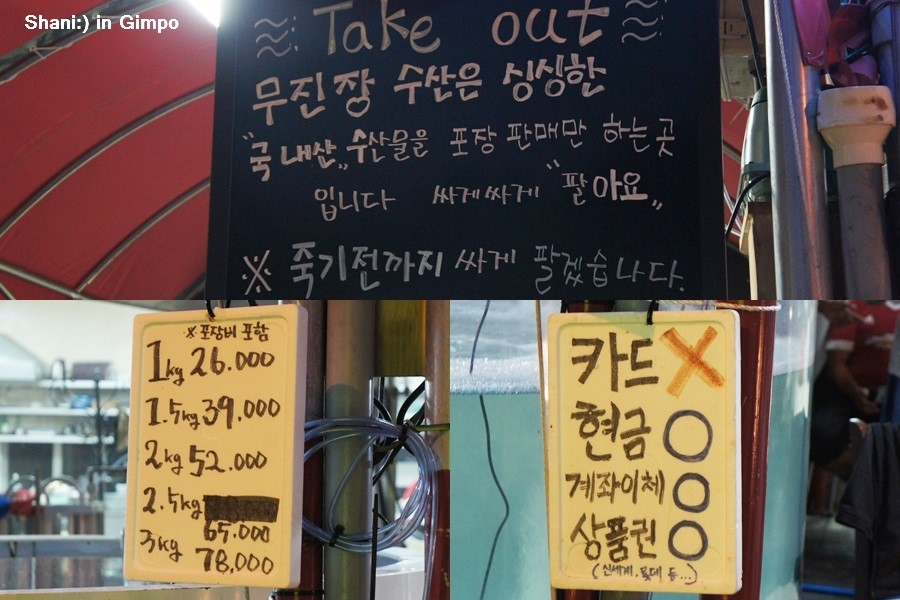 Shani:) in Gimpo
Take out
무진장 수산은 싱싱한
"국내산" 수산물을 포장 판매만 하는 곳
입니다 싸게싸게 "팔아요"
※ 죽기전까지 싸게 팔겠습니다.
※ 포장비 포함
1kg 26.000
1.5kg 39,000
2kg 52.000
2.5kg
65.000
3kg 78,000
카드 X
현금 ○
계좌이체 ○
상품권 ○
(신세계, 롯데 등...)